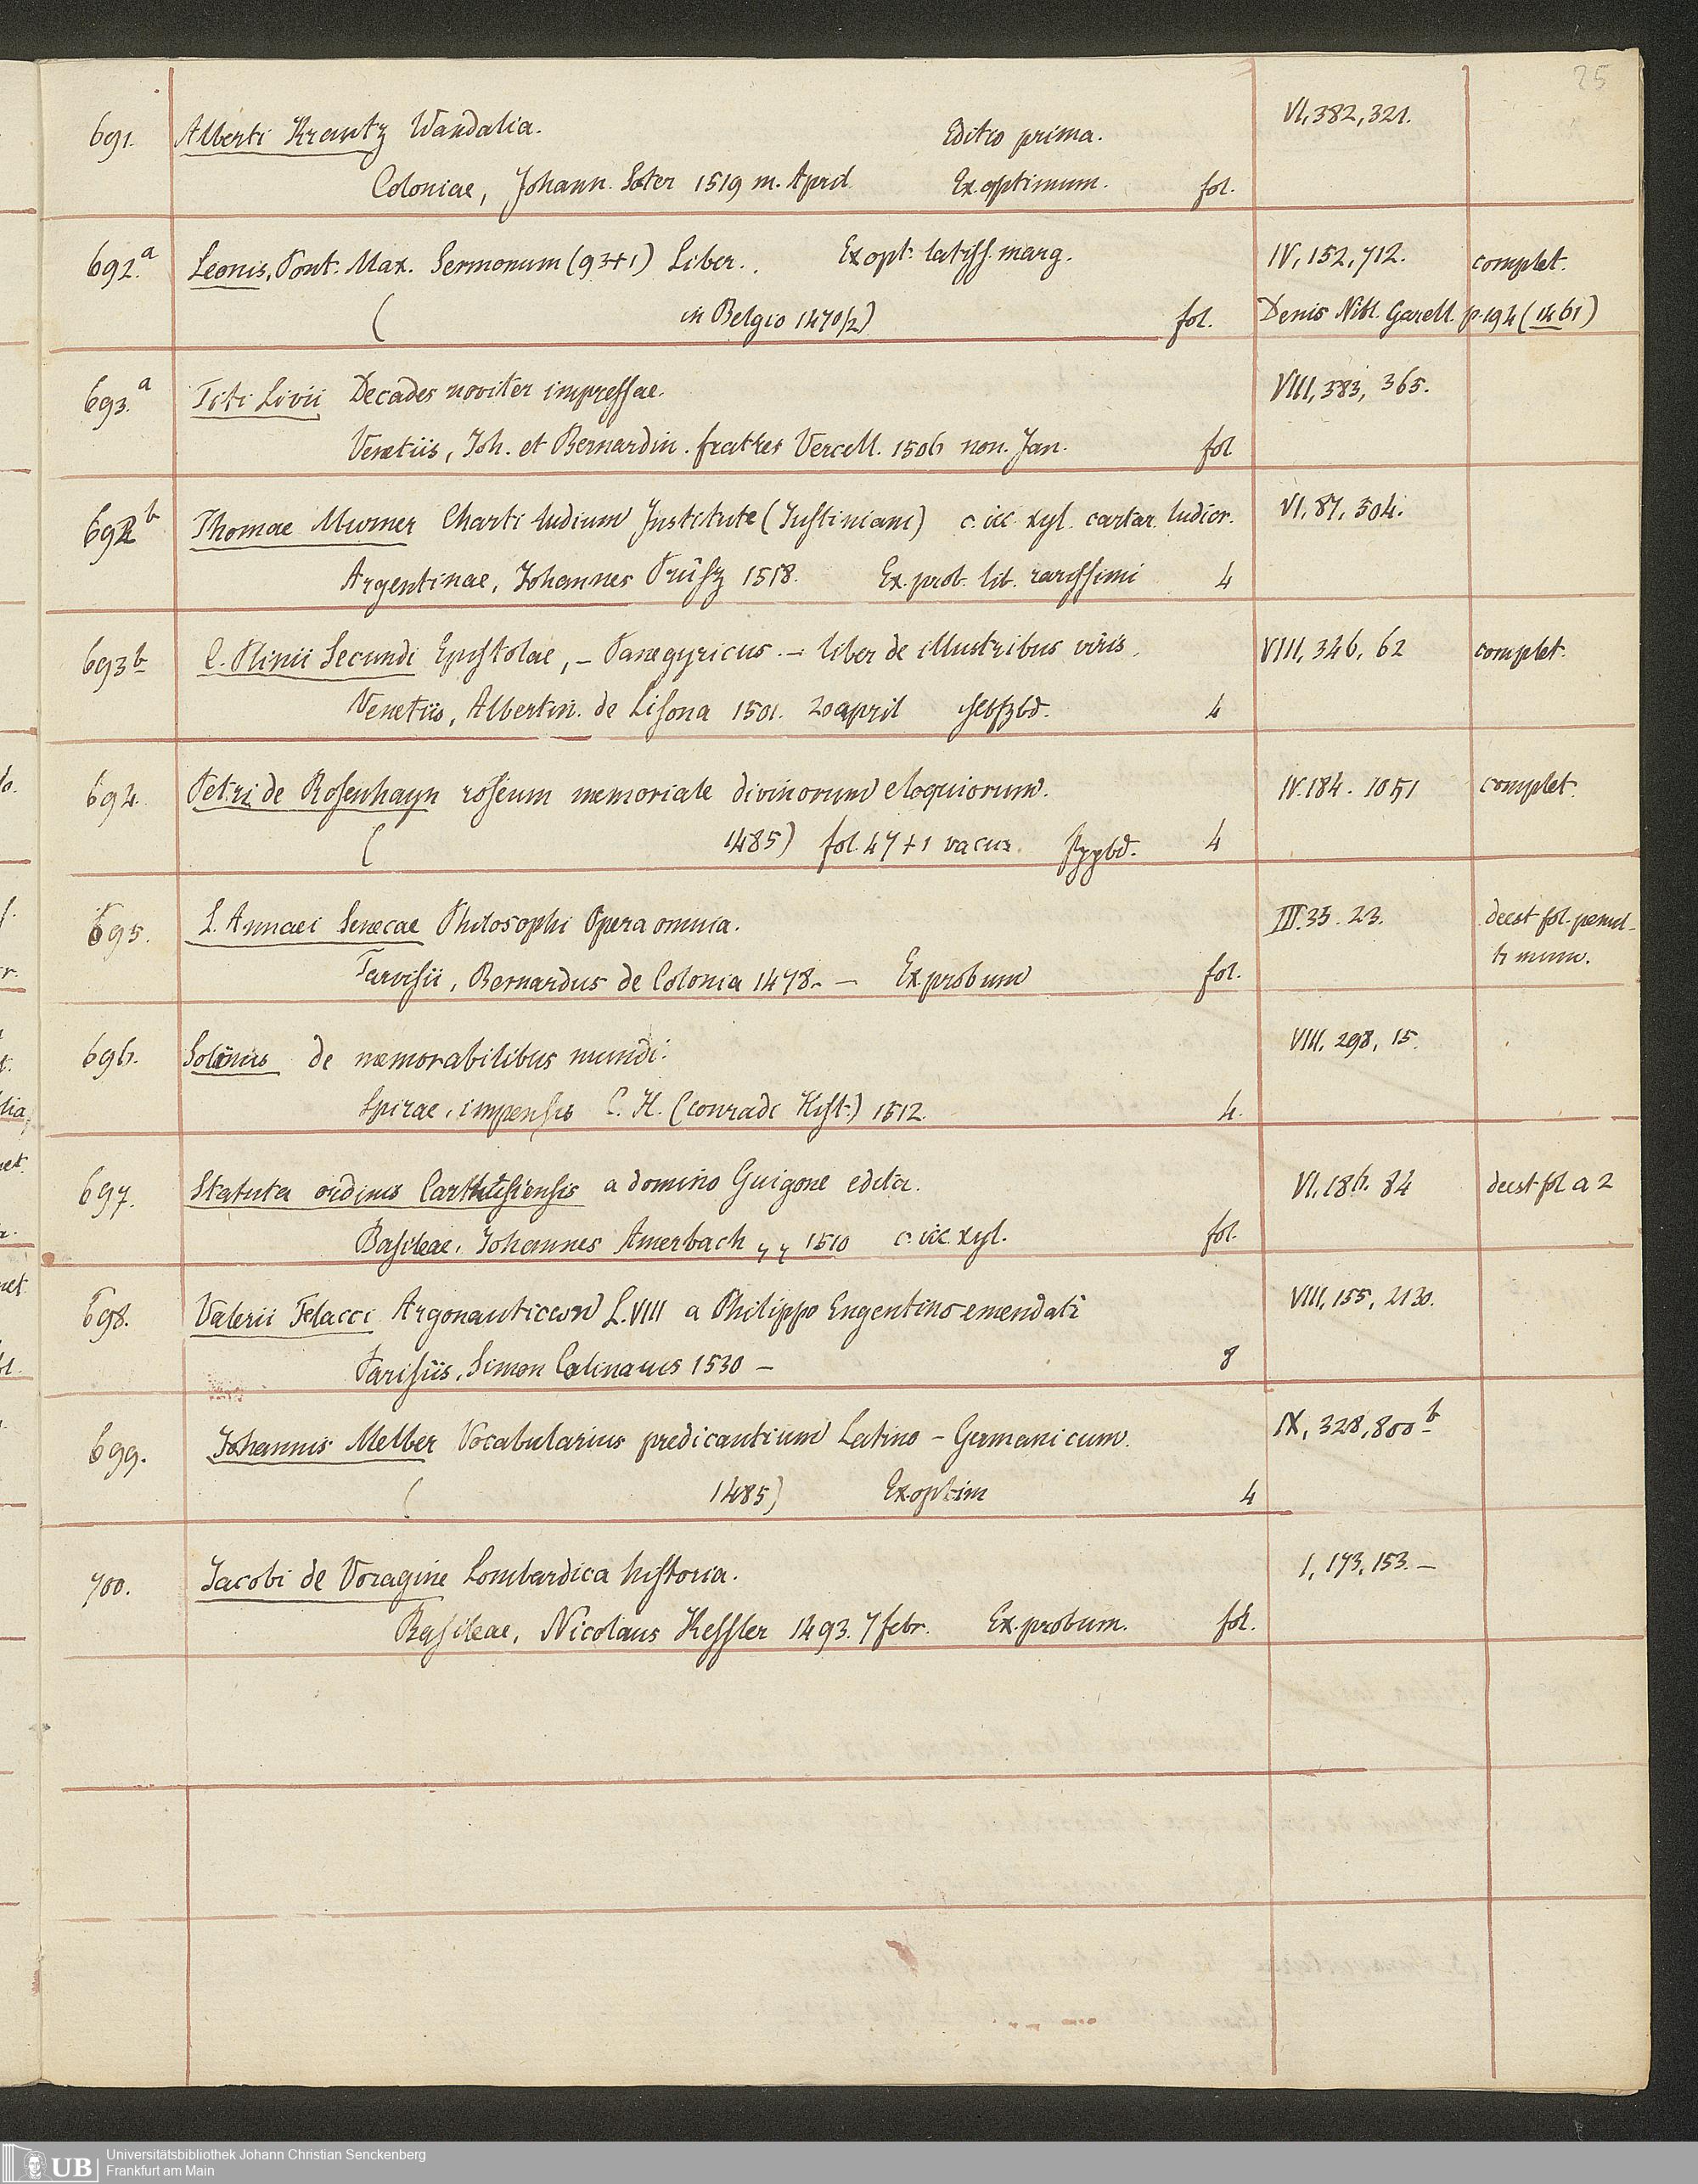 25
691. Alberti Krantz Wandalia. Editio prima. VI, 382, 321.
Coloniae, Johann. Soter 1519 m. April Ex. optimum. fol.
692.a Leonis, Pont. Max. Sermonum (93+1) Liber. Ex opt. latiss. marg. IV, 152, 712. complet.
( in Belgio 1470/2) fol. Denis Bibl. Garell. p. 194 (1461)
693.a Titi Livii Decades noviter impressae. VIII, 383, 365.
Venetiis, Joh. et Bernardin. fratres Vercell. 1506 non. Jan. fol
692b Thomae Murner Charti ludium Institute (Justiniani) c. icc xyl. cartar. ludior. VI. 87, 504.
Argentinae, Johannes Prüsz 1518. Ex. prob. lib. rarissimi 4
693b C. Plinii Secundi Epistolae, – Panegyricus. – liber de illustribus viris. VIII, 346, 62 complet.
Venetiis, Albertin. de Lisona 1501. 20 april 4
694. Petri de Rosenhayn roseum memoriale divinorum eloquiorum. IV. 184. 1051 complet.
( 1485) fol. 47+1 vacua 4
695. L. Annaei Senecae Philosophi Opera omnia. III. 35. 23. deest fol. penul-
Tarvisii, Bernardus de Colonia 1478. – Ex. probum fol.
696. Solinus de memorabilibus mundi. VIII. 298, 15.
Spirae, impensis C. H. (conradi Hist.) 1512. 4.
697. Statuta ordinis Carthusiensis a domino Guigone edita. VI. 186. 84 deest fol a 2
Basileae, Johannes Amerbach 1510 c. icc. xyl. fol.
698. Valerii Flacci Argonauticωn L. VIII a Philippo Engentino emendati VIII, 155, 2130.
Parisiis, Simon Colinaeus 1530 – 8
699. Johannis Melber Vocabularius predicantium Latino – Germanicum. IX, 328, 800b
( 1485) Ex. optim 4
700. Jacobi de Voragine Lombardica historia. I, 173, 153. –
Basileae, Nicolaus Kessler 1493. 7 febr. Ex. probum. fol.
UB Universitätsbibliothek Johann Christian Senckenberg
Frankfurt am Main